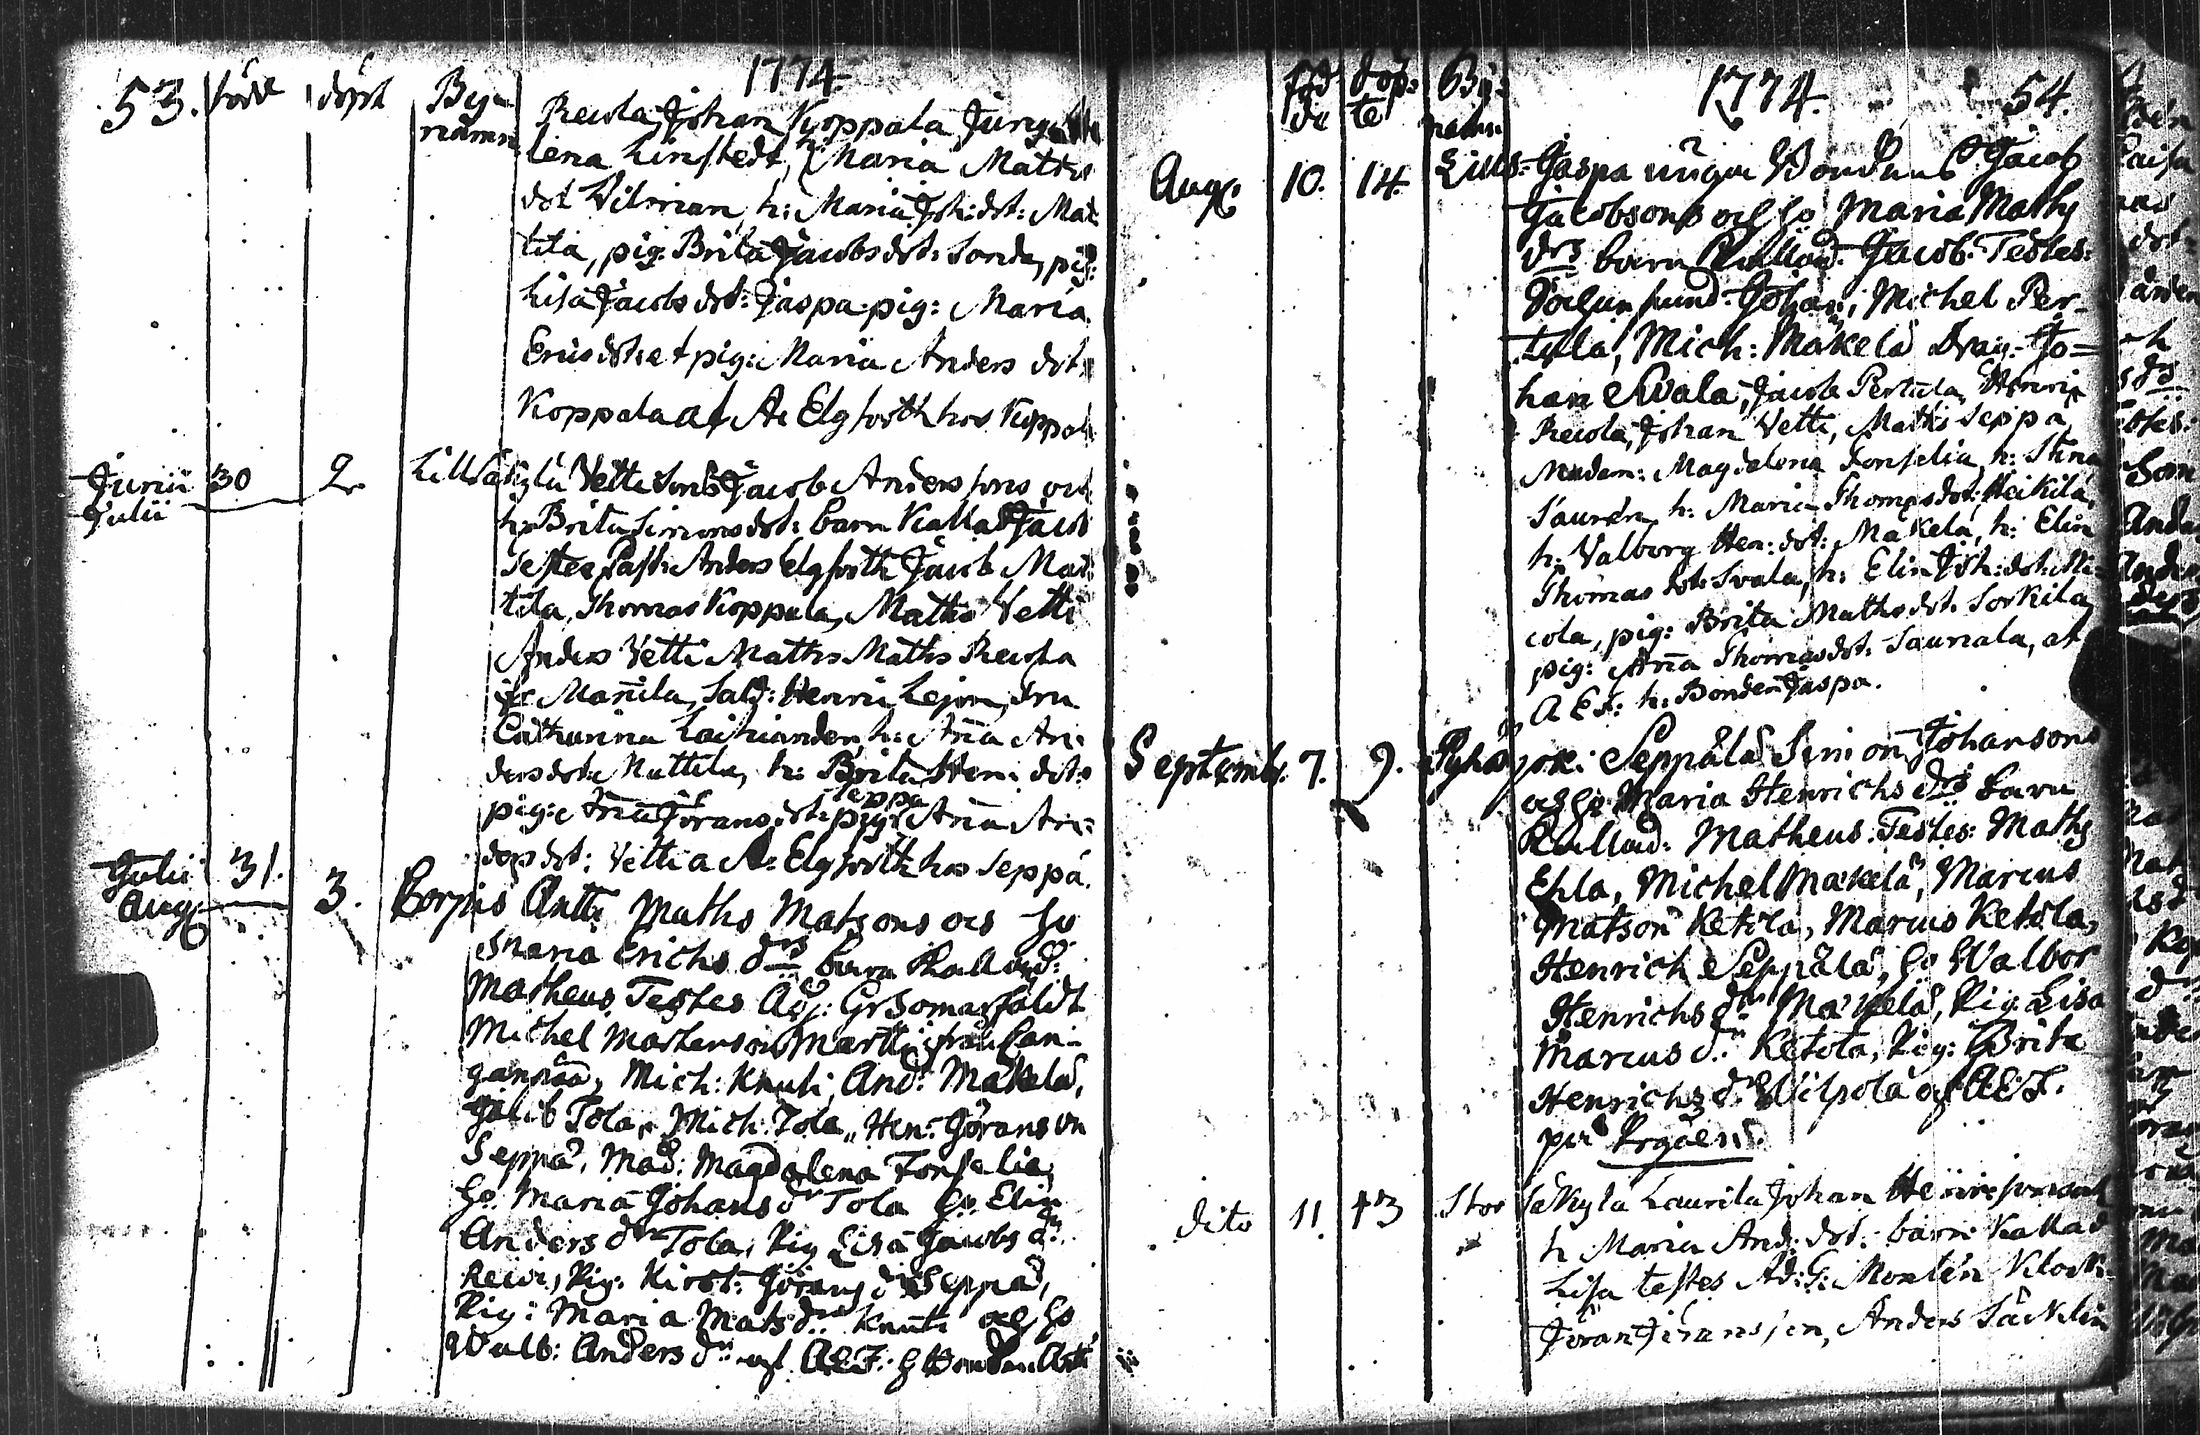 53. födde döpt By-namn 1774.
Recola, Johan Koppala Jungf
lena Linstedt, h: Maria Maths
dot Vilman, h: Maria Joh: dot: Mat
tila, pig: Brita Jacobs dot: Sonda, pig:
Lisa Jacobs dot: Jaspa pig: Maria
Erics dot: et pig: Maria Anders dot:
Koppala af A: Elgforth hos Koppala
Junii 30 2. Lill Säkylä Vetti Jacob Anders sons och
Julii h: Brita Simons dot: barn Kallad Jacob
Testes Past: Anders Elgforth Jacob Mat
tila, Thomas Koppala, Maths Vetti
Anders Vetti Maths Maths Recola
Mañila, Sald: Henric Lejon, fru
Catharina Laihiander, h: Aña An:
ders dot: Mattila, h: Brita Hen: dot:
Seppä
pig: Aña Jörans dot: pig: Aña An:
ders dot: Vetti a A: Elgforth hos Seppä.
Julii 31. 3. Korpis Antti Maths Matsons och h:
Aug: Maria Erichs drs barn Kallad:
Matheus Testes Adj:
Michel Martenson Martti ifrån Can-
ganpää, Mich: Knuti, And: Mäkelä,
Jacob Tola, Mich: Tola, Hen: Göranson
Seppä, Mad: Magdalena Fonselia,
h: Maria Johans dr Tola h: Elin
Anders dr Tola, Pig Lisa Jacobs dr
Pig: Kirst: Görans dr Seppä,
Pig: Maria Mats dr Knuti och h:
Walb: Anders dr af A.E.F. h: Bonden Antti
föd-de döp-te By-namn 1774. 54.
Aug: 10. 14. Lills: Jaspa unga Bondens Jacob
Jacobsons och h: Maria Maths
drs barn Kallad. Jacob. Testes:
Johan, Michel Per-
tula, Mich: Mäkelä Drag: Jo=
han Svala, Jacob Pertula, Henric
Recola, Johan Vetti, Maths Seppä
Madam: Magdalena Fonselia, h: Stina
Saurén, h: Maria Thomas dot: Heikilä,
h: Valborg Hen: dot: Mäkelä, h: Elin
Thomas dot: Svala, h: Elin Joh: dot:
cola, pig: Brita Maths dot: Sorkila,
pig: Aña Thomas dot: Sauriala, af
A E F: h: Bonden Jaspa.
Septemb: 7. 9. Pyhä joki Seppälä Simon Johansons
och h: Maria Henrichs drs barn
Kallad: Matheus. Testes: Maths
Ehla, Michel Mäkelä, Marcus
Matson Ketola, Marcus Ketola,
Henrich Seppälä, h: Walbor
Henrichs dr Mäkelä, Pig: Lisa
Marcus dr Ketola, Pig: Brita
Henrichs dr Wilpola af A.E.F.
på
dito 11. 13 Stor Säkylä Laurila Johan Henricsons och
h Maria And: dot: barn Kallad
Lisa testes Ad: G: Montén Klock:
Jöran Jöransson, Anders Säcklin